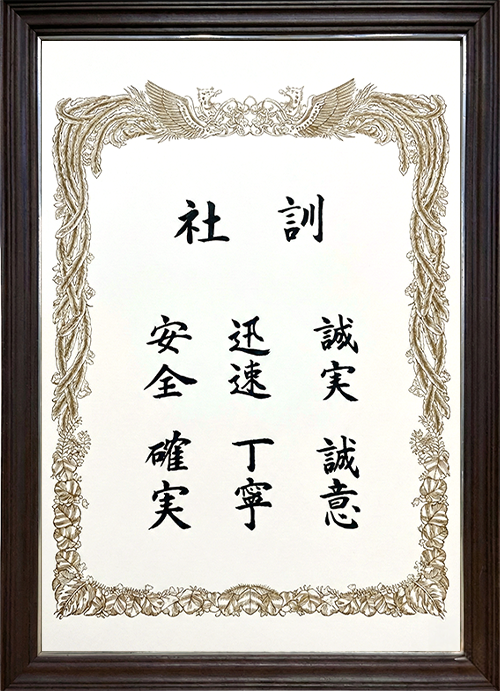 社訓
誠実 誠意
迅速 丁寧
安全 確実